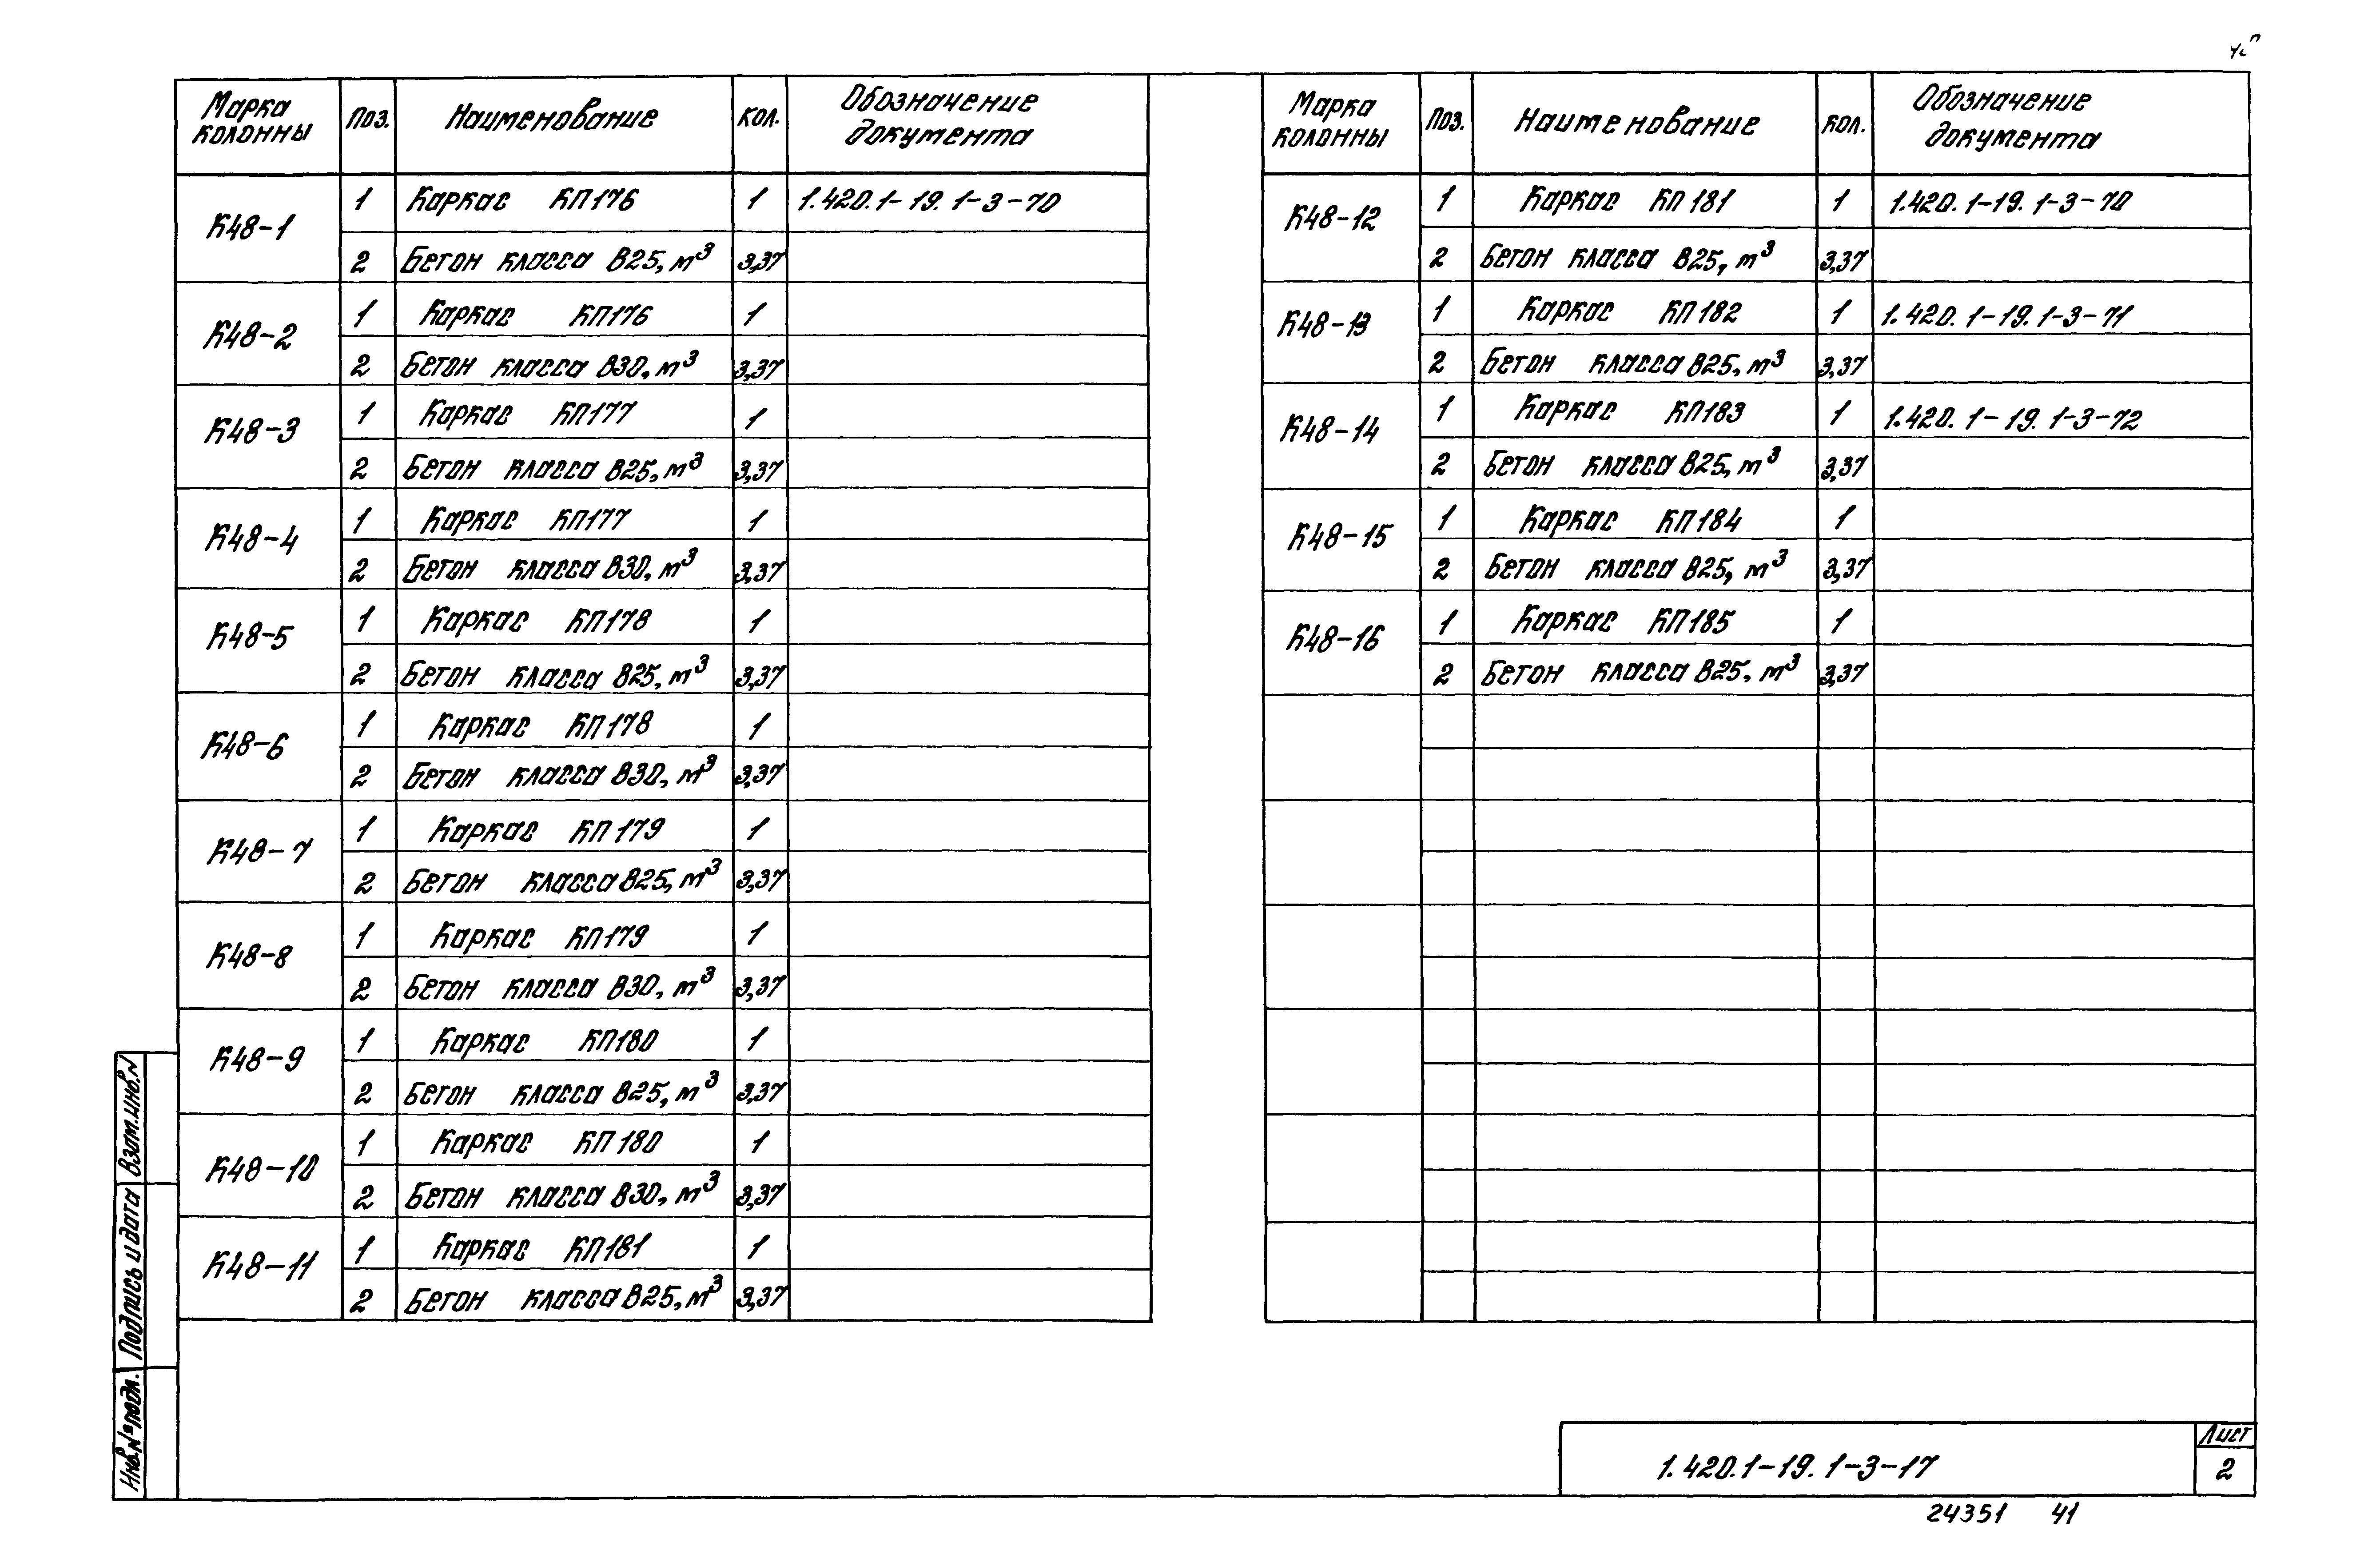 Марка колонны Поз. Наименование Кол. Обозначение документа
К48-1 1 Каркас КП176 1 1.420.1-19.1-3-70
2 Бетон класса В25, м³ 3,37
К48-2 1 Каркас КП176 1
2 Бетон класса В30, м³ 3,37
К48-3 1 Каркас КП177 1
2 Бетон класса В25, м³ 3,37
К48-4 1 Каркас КП177 1
2 Бетон класса В30, м³ 3,37
К48-5 1 Каркас КП178 1
2 Бетон класса В25, м³ 3,37
К48-6 1 Каркас КП178 1
2 Бетон класса В30, м³ 3,37
К48-7 1 Каркас КП179 1
2 Бетон класса В25, м³ 3,37
К48-8 1 Каркас КП179 1
2 Бетон класса В30, м³ 3,37
К48-9 1 Каркас КП180 1
2 Бетон класса В25, м³ 3,37
К48-10 1 Каркас КП180 1
2 Бетон класса В30, м³ 3,37
К48-11 1 Каркас КП181 1
2 Бетон класса В25, м³ 3,37
Марка колонны Поз. Наименование Кол. Обозначение документа
К48-12 1 Каркас КП181 1 1.420.1-19.1-3-70
2 Бетон класса В25, м³ 3,37
К48-13 1 Каркас КП182 1 1.420.1-19.1-3-71
2 Бетон класса В25, м³ 3,37
К48-14 1 Каркас КП183 1 1.420.1-19.1-3-72
2 Бетон класса В25, м³ 3,37
К48-15 1 Каркас КП184 1
2 Бетон класса В25, м³ 3,37
К48-16 1 Каркас КП185 1
2 Бетон класса В25, м³ 3,37
Взам. инв. №
Подпись и дата
Инв. № подл.
1.420.1-19.1-3-17
Лист
2
24351 41